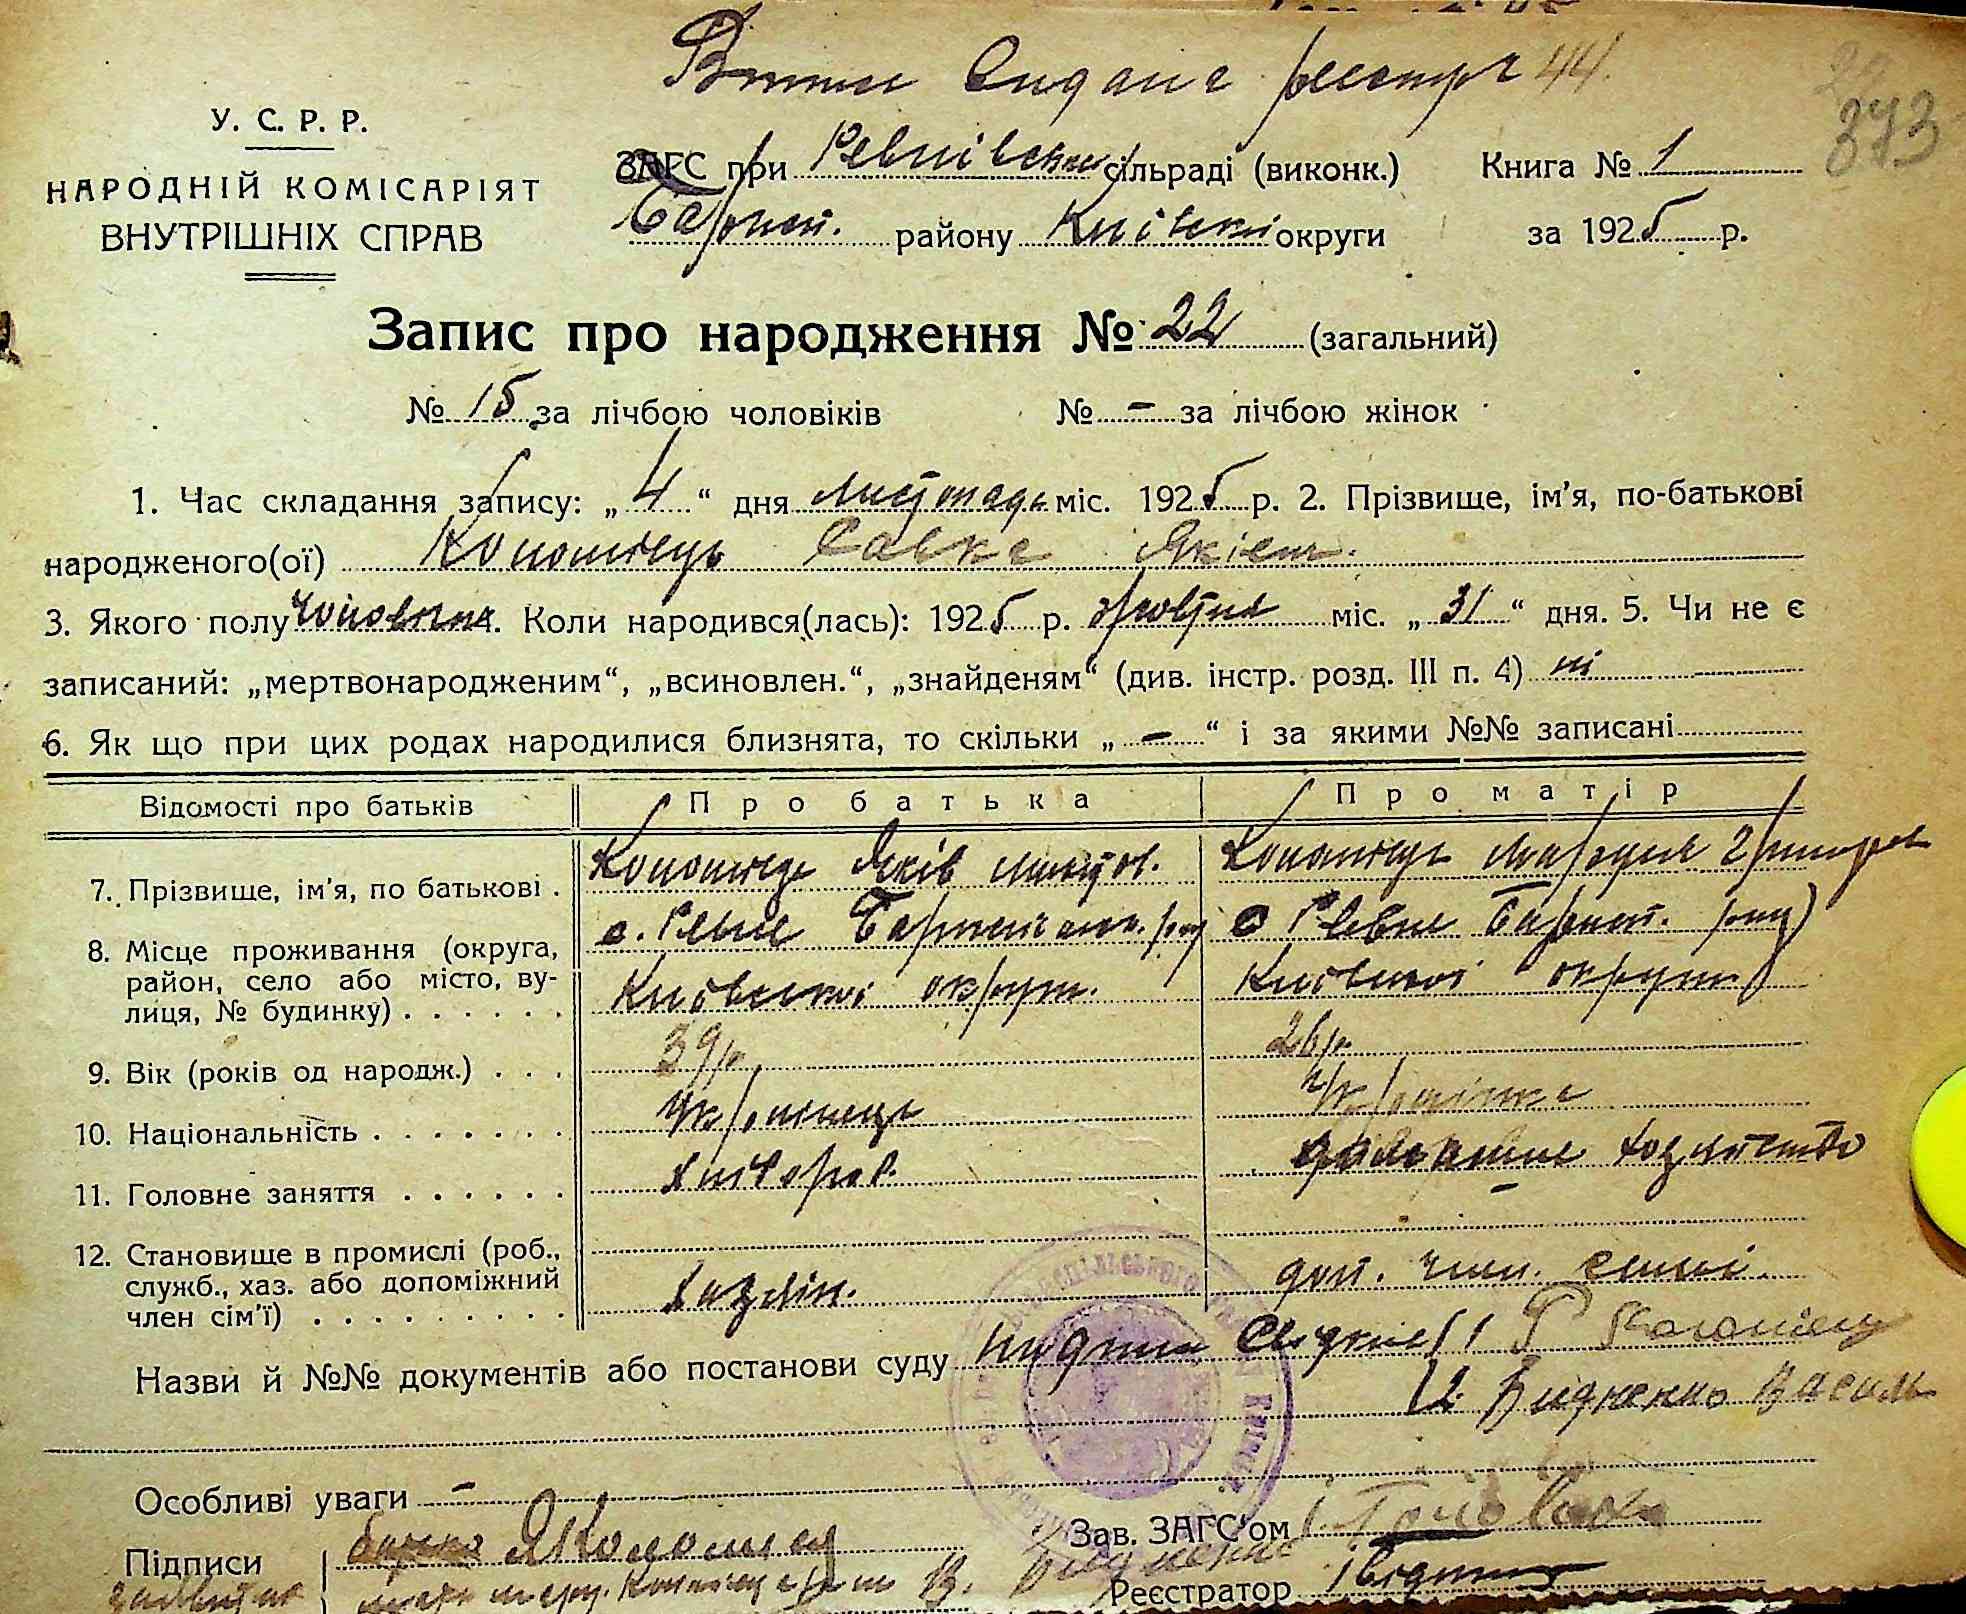 Витяг видана реєстр 44.
373
У. С. Р. Р.
НАРОДНІЙ КОМІСАРІЯТ
ВНУТРІШНІХ СПРАВ
ЗАГС при Ревнівській сільраді (виконк.) Книга № 1
району Київської округи за 1925 р.
Запис про народження № 22 (загальний)
№ 15 за лічбою чоловіків № – за лічбою жінок
1. Час складання запису: „4“ дня Листопада міс. 1925 р. 2. Прізвище, ім'я, по-батькові
народженого(ої) Коломієць Савка Яківич.
3. Якого полу чоловіча. Коли народився(лась): 1925 р. жовтня міс. „31“ дня. 5. Чи не є
записаний: „мертвонародженим“, „всиновлен.“, „знайденям“ (див. інстр. розд. III п. 4) ні
6. Як що при цих родах народилися близнята, то скільки „–“ і за якими №№ записані
Відомості про батьків Про батька Про матір
7. Прізвище, ім'я, по батькові . Коломієць Яків Коломієць
8. Місце проживання (округа, район, село або місто, вулиця, № будинку) . . . . . . с. Ревне с Ревне
Київської округи. Київської округи
9. Вік (років од народж.) . . . 39 р. 26 р.
10. Національність . . . . . . . Українець Українка
11. Головне заняття . . . . . . хлібороб. домашнє хозяйство
12. Становище в промислі (роб., служб., хаз. або допоміжний член сім'ї) . . . . . . . . . хазяїн. доп. член. сімї.
Назви й №№ документів або постанови суду Свідки 1 Коломієць
2. Василь
Особливі уваги –
Підписи батько Я Коломиец Зав. ЗАГС'ом Голова
Коломієць Реєстратор